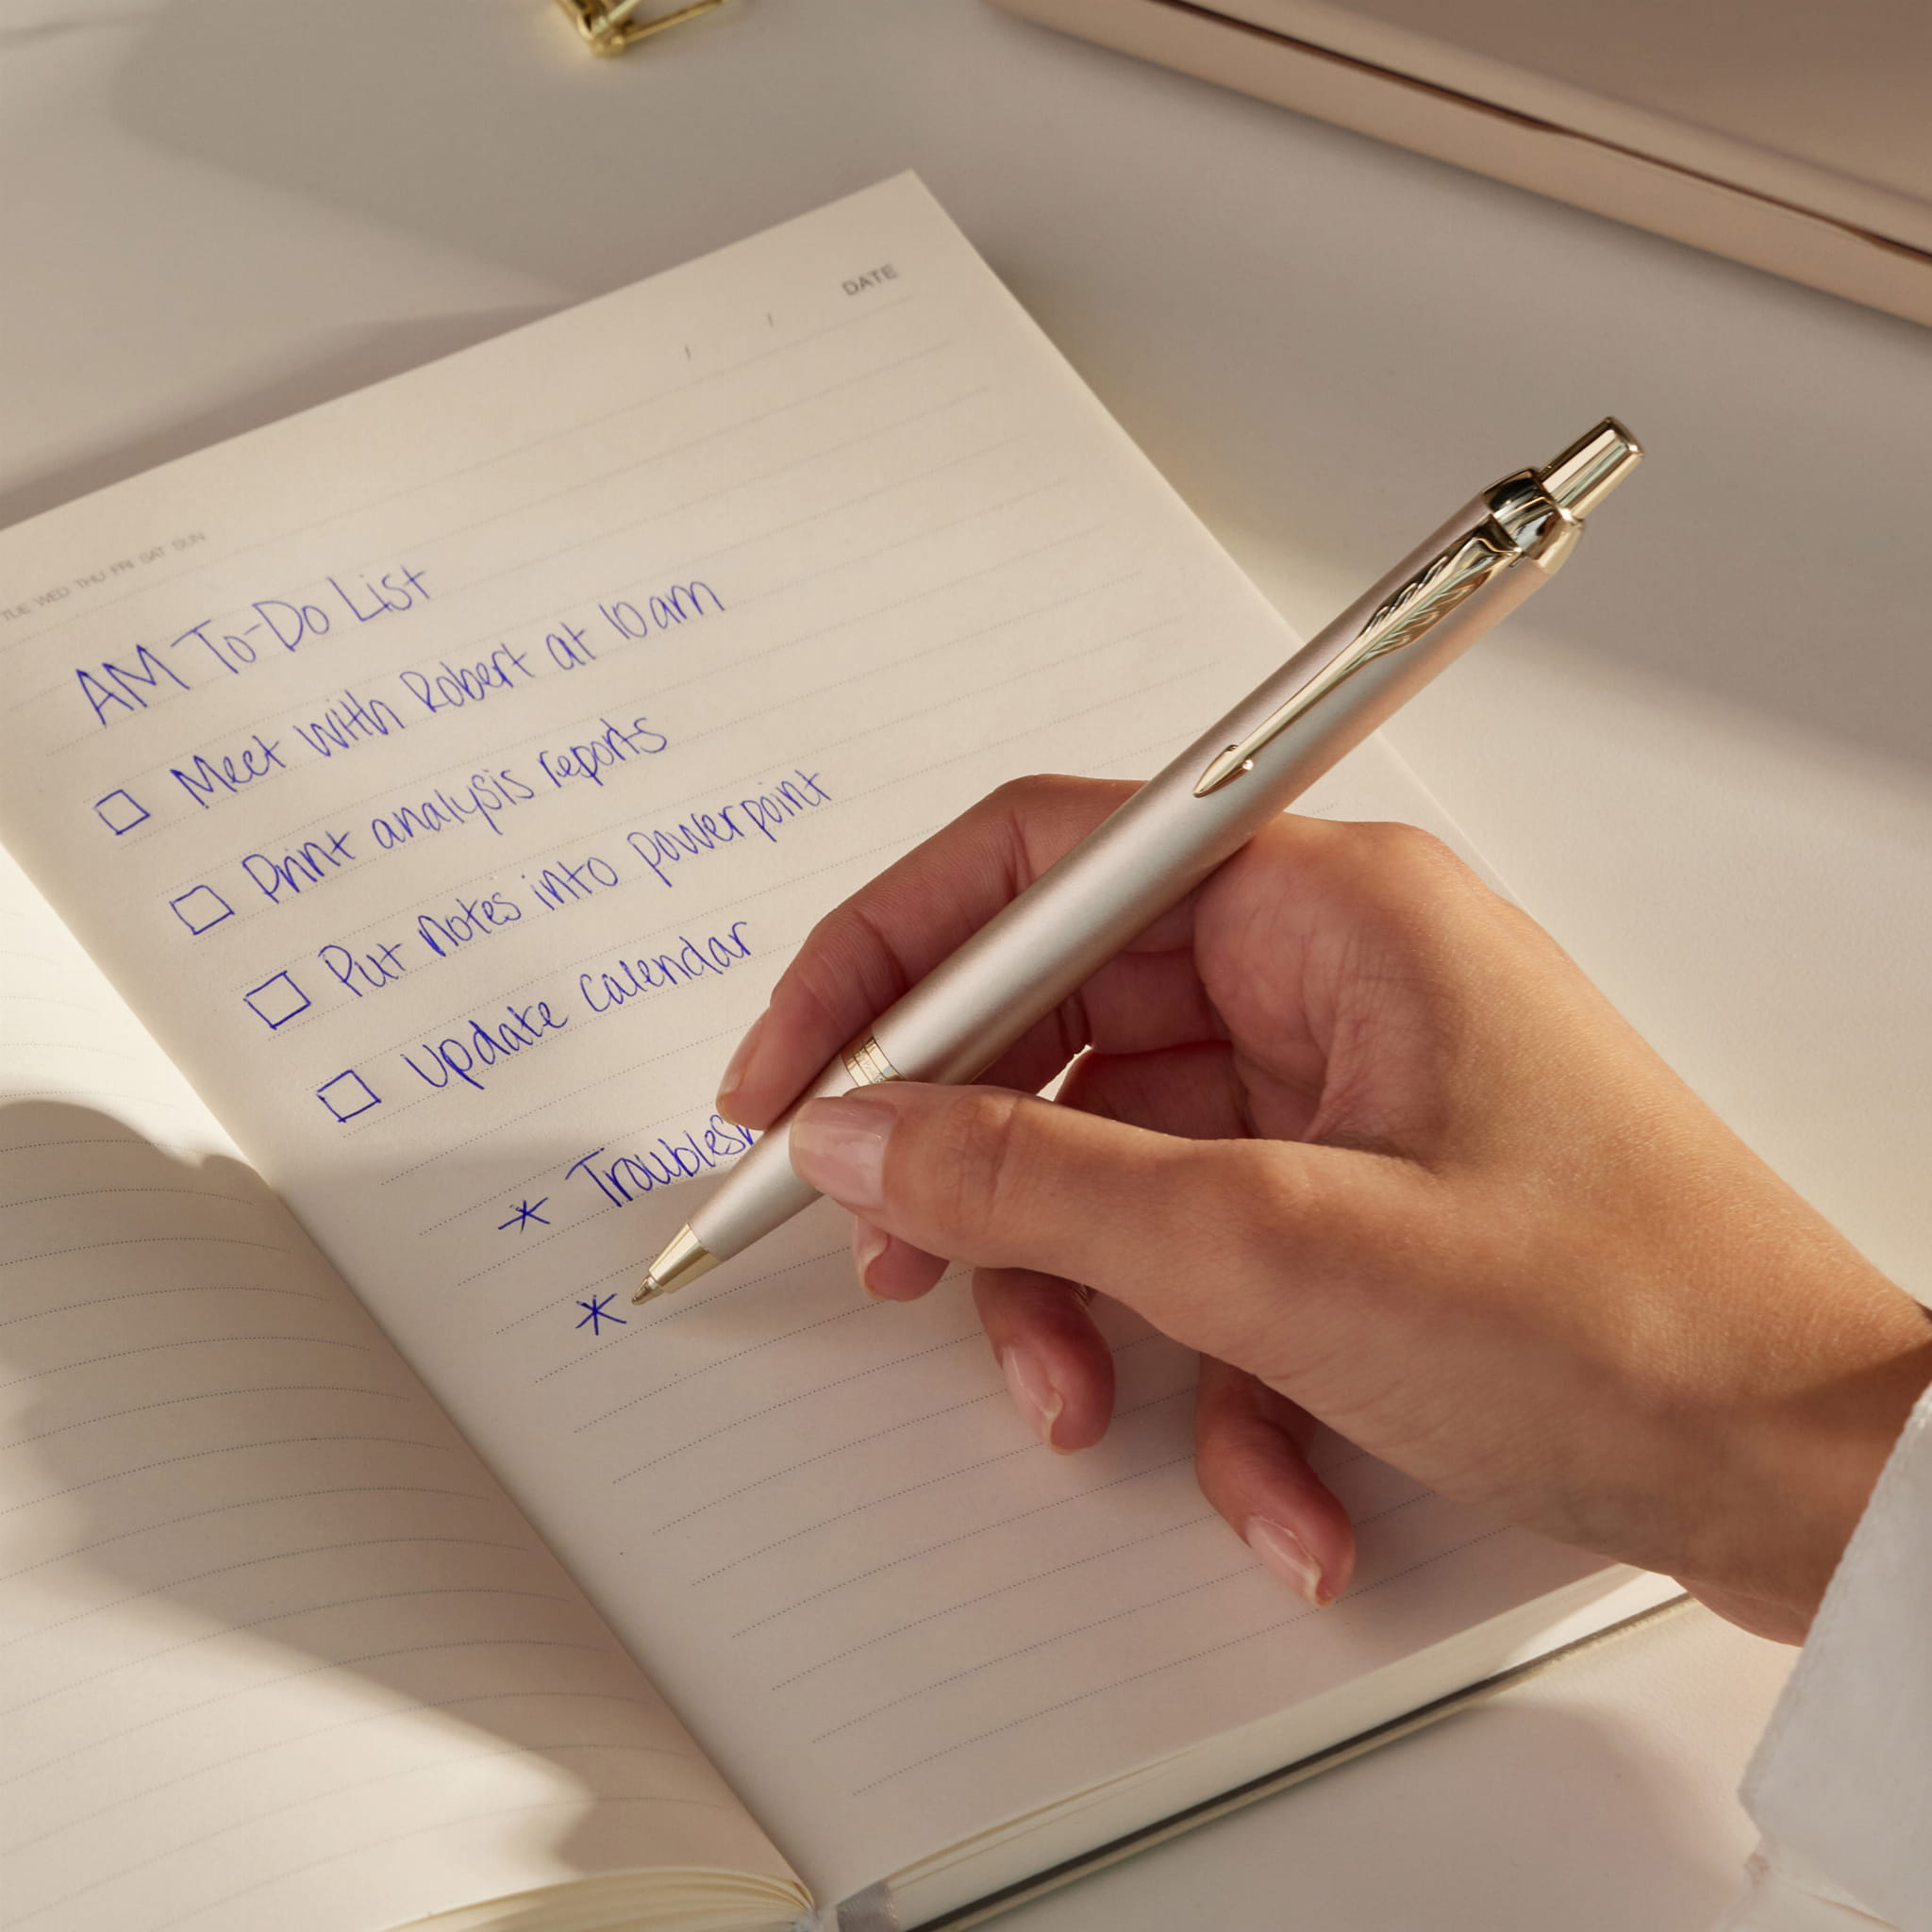 DATE
TUE WED THU FRI SAT SUN
AM To-Do List
Meet with Robert at 10am
Print analysis reports
Put notes into powerpoint
Update calendar
* Troublesh
*